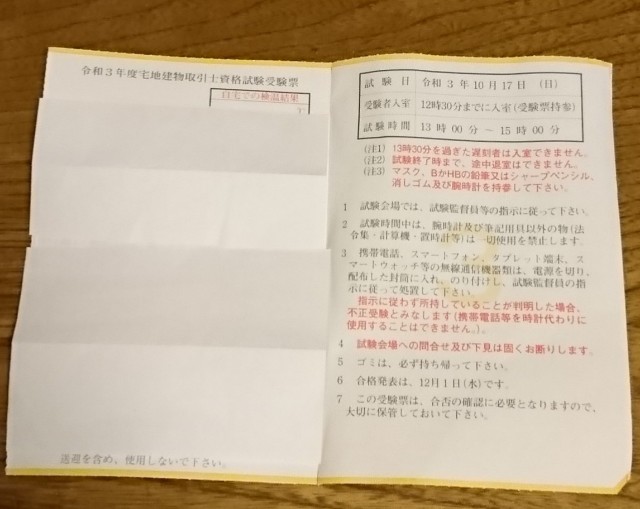 令和3年度宅地建物取引士資格試験受験票
自宅での検温結果
送迎を含め、使用しないで下さい。
試験日 令和3年10月17日(日)
受験者入室 12時30分までに入室(受験票持参)
試験時間 13時00分~15時00分
(注1) 13時30分を過ぎた遅刻者は入室できません。
(注2) 試験終了時まで、途中退室はできません。
(注3) マスク、BかHBの鉛筆又はシャープペンシル、
消しゴム及び腕時計を持参して下さい。
1 試験会場では、試験監督員等の指示に従って下さい。
2 試験時間中は、腕時計及び筆記用具以外の物(法
令集・計算機・置時計等)は一切使用を禁止します。
3 携帯電話、スマートフォン、タブレット端末、ス
マートウォッチ等の無線通信機器類は、電源を切り、
配布した封筒に入れ、のり付けし、試験監督員の指
示に従って処置して下さい。
指示に従わず所持していることが判明した場合、
不正受験とみなします(携帯電話等を時計代わりに
使用することはできません。)。
4 試験会場への問合せ及び下見は固くお断りします。
5 ゴミは、必ず持ち帰って下さい。
6 合格発表は、12月1日(水)です。
7 この受験票は、合否の確認に必要となりますので、
大切に保管しておいて下さい。